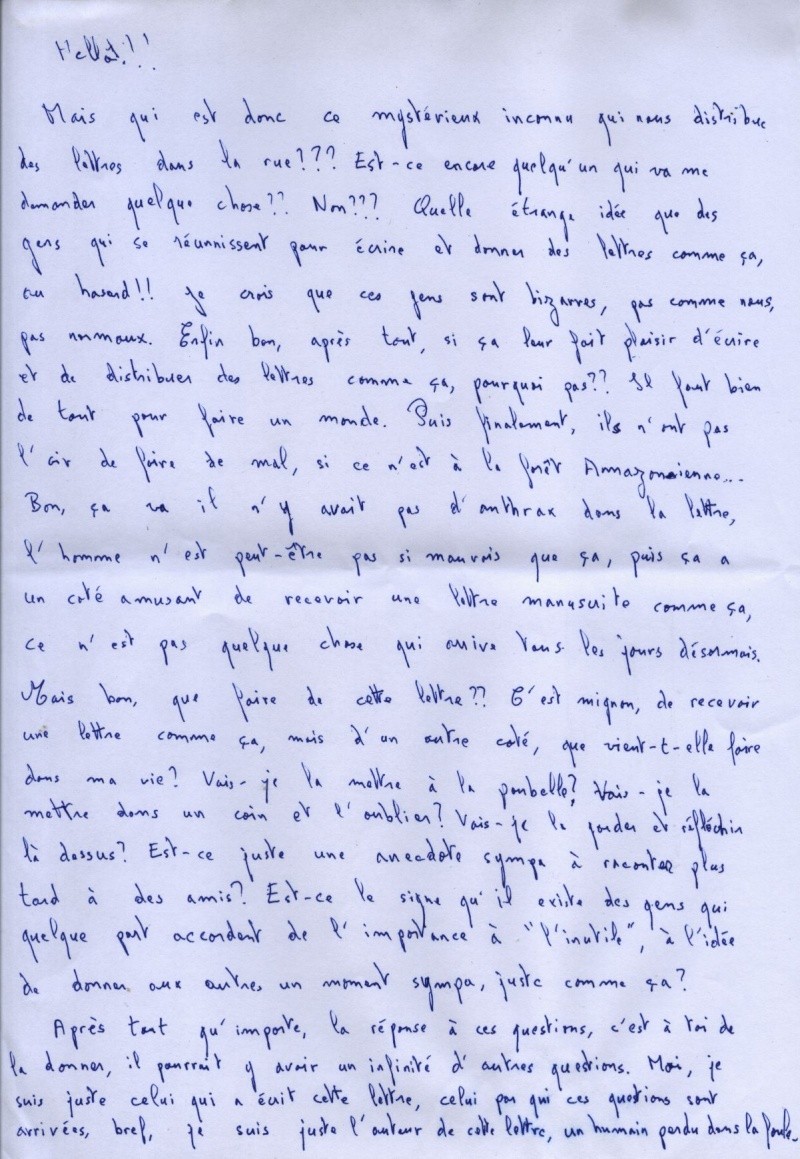 Hello!!!
Mais qui est donc ce mystérieux inconnu qui nous distribue
des lettres dans la rue??? Est-ce encore quelqu'un qui va me
demander quelque chose?? Non??? Quelle étrange idée que des
gens qui se réunnissent pour écrire et donner des lettres comme ça,
au hasard!! Je crois que ces gens sont bizarres, pas comme nous,
pas normaux. Enfin bon, après tout, si ça leur fait plaisir d'écrire
et de distribuer des lettres comme ça, pourquoi pas?? Il faut bien
de tout pour faire un monde. Puis finalement, ils n'ont pas
l'air de faire de mal, si ce n'est à la forêt Amazonienne...
Bon, ça va il n'y avait pas d'anthrax dans la lettre,
l'homme n'est peut-être pas si mauvais que ça, puis ça a
un coté amusant de recevoir une lettre manuscrite comme ça,
ce n'est pas quelque chose qui arrive tous les jours désormais.
Mais bon, que faire de cette lettre?? C'est mignon, de recevoir
une lettre comme ça, mais d'un autre coté, que vient-t-elle faire
dans ma vie? Vais-je la mettre à la poubelle? Vais-je la
mettre dans un coin et l'oublier? Vais-je la garder et réfléchir
là dessus? Est-ce juste une anecdote sympa à raconter plus
tard à des amis? Est-ce le signe qu'il existe des gens qui
quelque part accordent de l'importance à "l'inutile", à l'idée
de donner aux autres un moment sympa, juste comme ça?
Après tout qu'importe, la réponse à ces questions, c'est à toi de
la donner, il pourrait y avoir un infinité d'autres questions. Moi, je
suis juste celui qui a écrit cette lettre, celui par qui ces questions sont
arrivées, bref, je suis juste l'auteur de cette lettre, un humain perdu dans la foule.